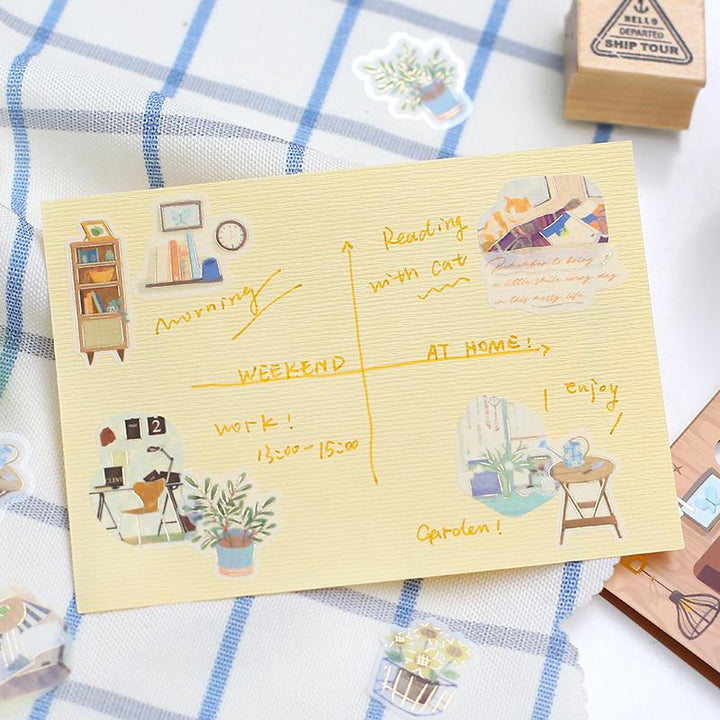 HELLO
DEPARTED
SHIP TOUR
morning
Reading
with cat
Remember to bring
a little smile every day
in this messy life.
WEEKEND
AT HOME!
work!
13:00-15:00
2
enjoy
Garden!